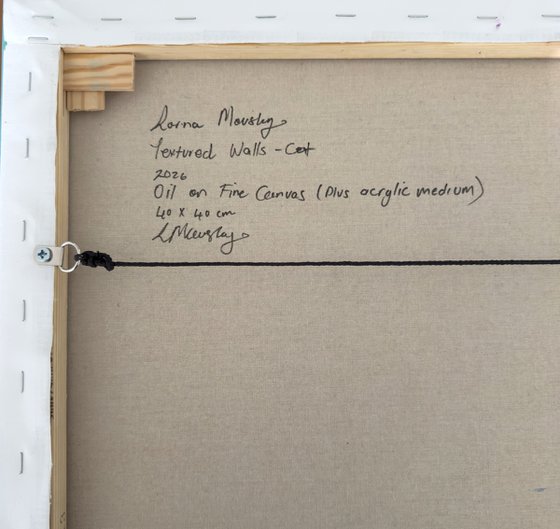 Lorna Mousley
Textured Walls - Cat
2026
Oil on Fine Canvas (plus acrylic medium)
40 x 40 cm